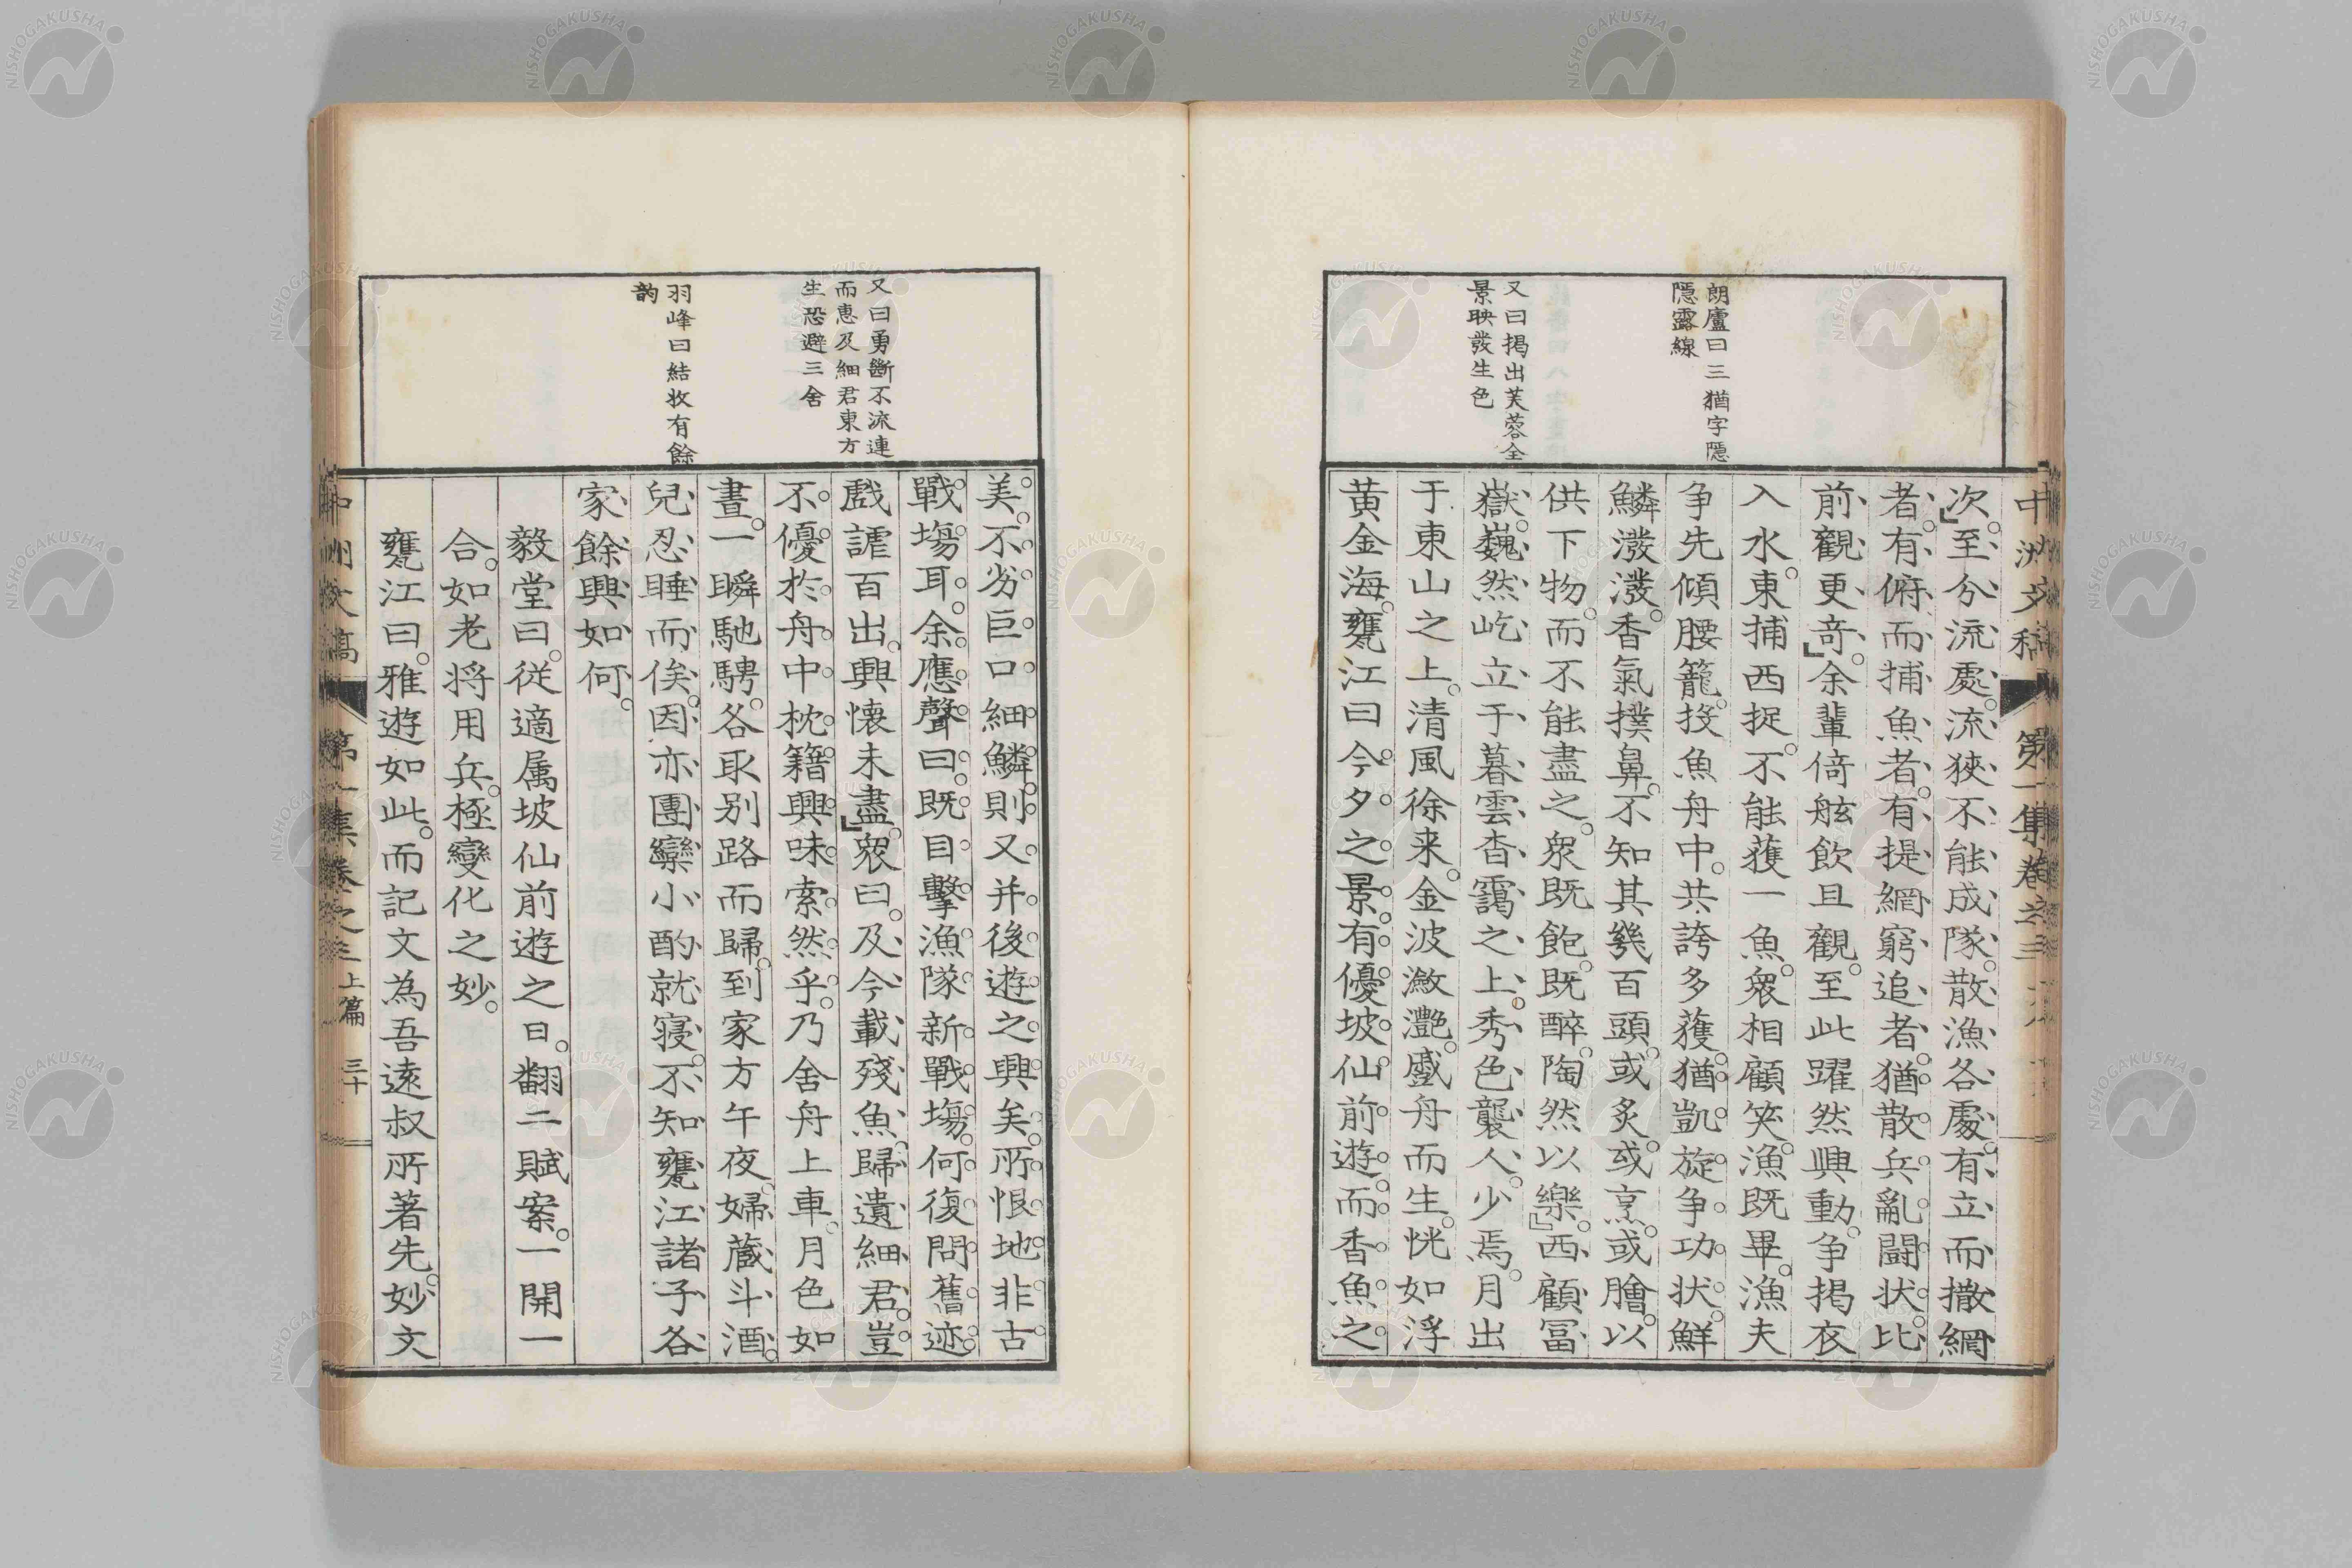 中洲文稿 第一集卷之三
朗廬曰三猶字隱
隱露線
又曰掲出芙蓉全
景映發生色
次。至分流處。流狹不能成隊。散漁各處。有立而撒網
者。有俯而捕魚者。有提網窮追者。猶散兵亂鬪状。比
前觀更奇。余輩倚舷飲且觀。至此躍然興動。争掲衣
入水。東捕西捉。不能獲一魚。衆相顧笑。漁既畢。漁夫
争先傾腰籠。投魚舟中。共誇多獲。猶凱旋争功状。鮮
鱗潑潑。香氣撲鼻。不知其幾百頭。或炙。或烹。或膾。以
供下物。而不能盡之。衆既飽。既醉。陶然以樂。西顧冨
嶽。巍然屹立于暮雲杳靄之上。秀色襲人。少焉。月出
于東山之上。清風徐来。金波瀲灔。盛舟而生。恍如浮
黄金海。甕江曰。今夕之景。有優坡仙前遊。而香魚之
又曰勇斷不流連
而惠及細君東方
生恐避三舍
羽峰曰結收有餘
韵
美。不劣巨口細鱗。則又并後遊之興矣。所恨地非古
戰塲耳。余應聲曰。既目擊漁隊新戰塲。何復問舊迹。
戲謔百出。興懐未盡。衆曰。及今載殘魚。歸遺細君。豈
不優於舟中枕籍。興味索然乎。乃舍舟上車。月色如
晝。一瞬馳騁。各取别路而歸。到家方午夜。婦藏斗酒。
兒忍睡而俟。因亦團欒小酌就寝。不知甕江諸子各
家餘興如何。
毅堂曰。従適属坡仙前遊之日。翻二賦案。一開一
合。如老将用兵。極變化之妙。
甕江曰。雅遊如此。而記文為吾遠叔所著先。妙文
中洲文稿 第一集卷之三 上篇 三十